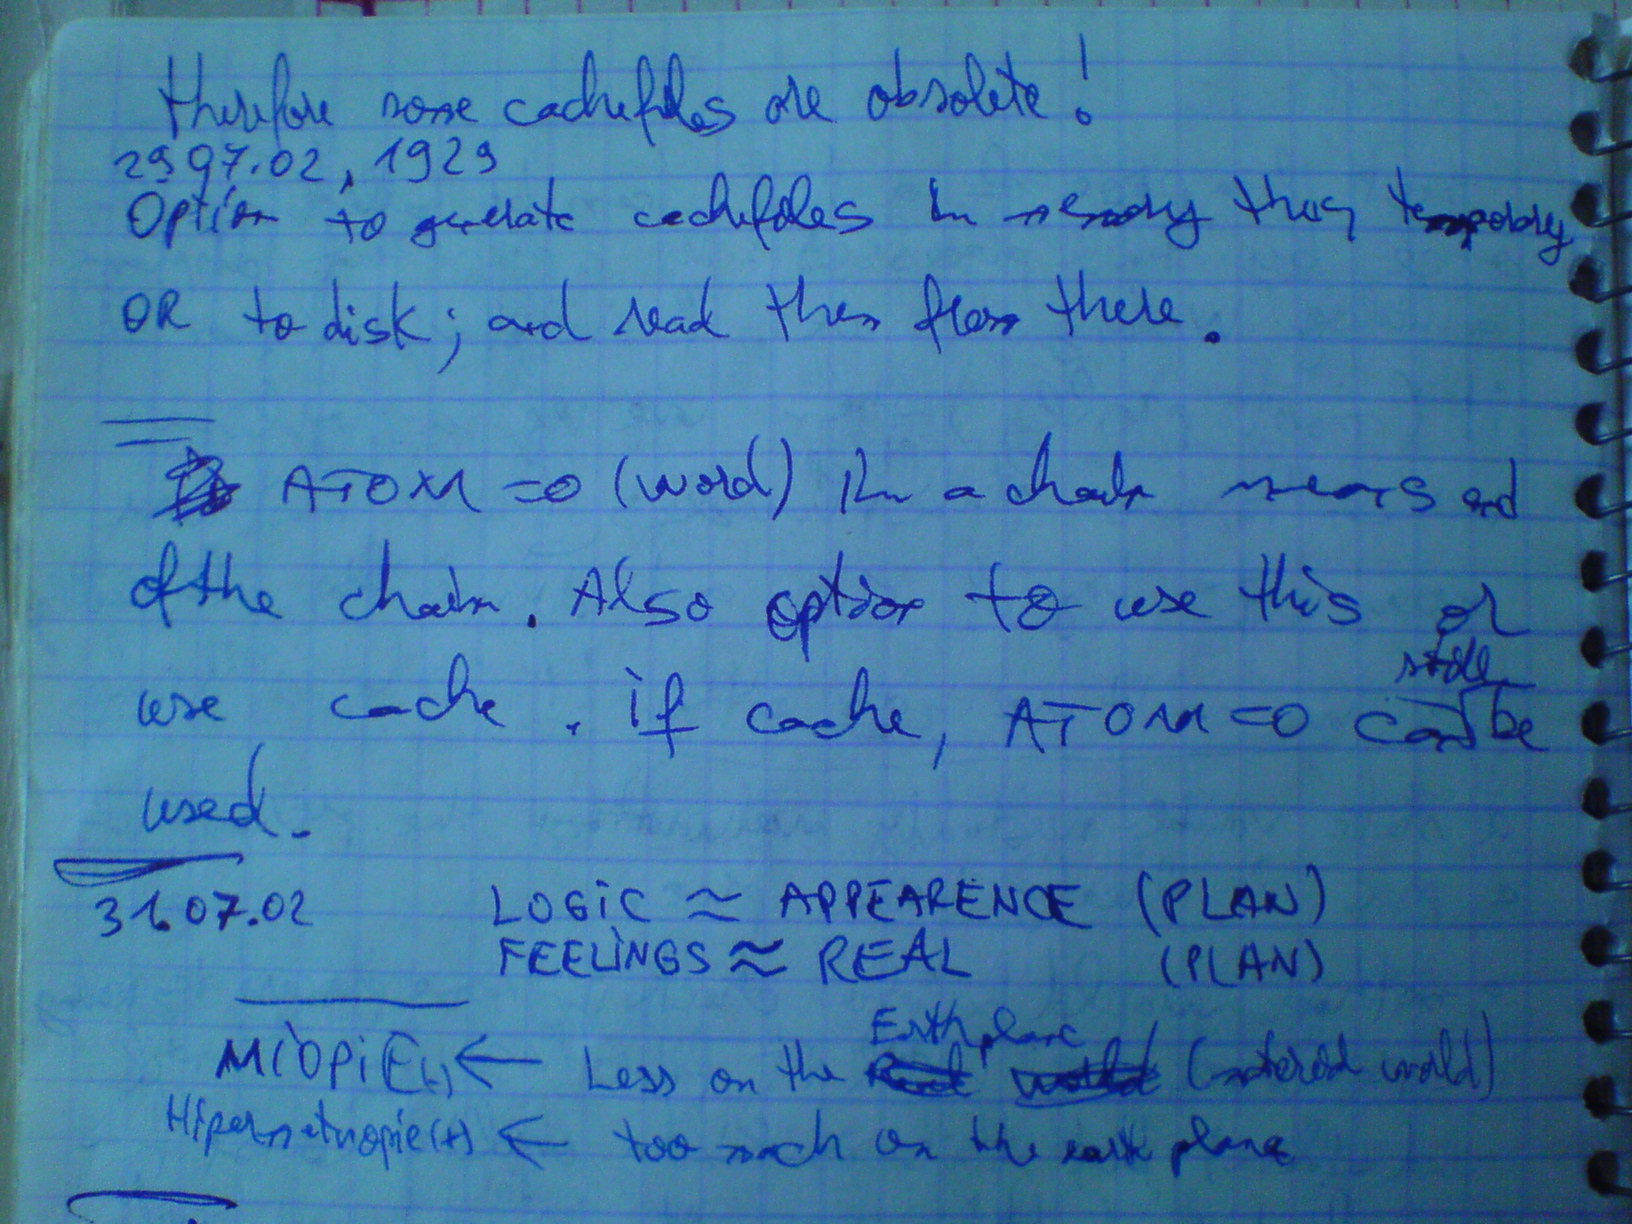 therefore some cachefiles are obsolete!
2907.02, 1929
Option to generate cachefiles in memory thus temporary
OR to disk; and read them from there.
ATOM =0 (word) in a chain means end
of the chain. Also option to use this or
use cache. if cache, ATOM=0 can still be
used.
31.07.02 LOGIC ≈ APPEARENCE (PLAN)
FEELINGS ≈ REAL (PLAN)
MIOPIE(-) ← Less on the Earth plane (material world)
Hipermetropie(+) ← too much on the earth plane